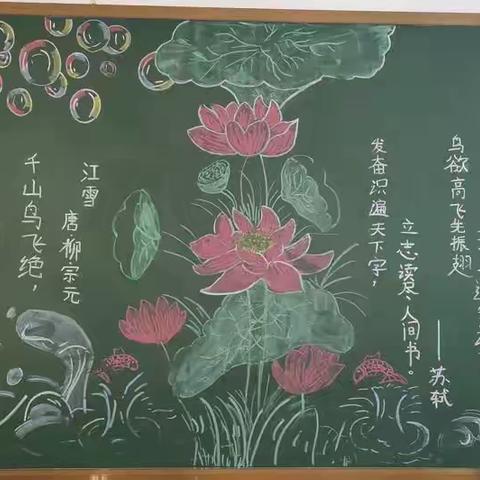 江雪
唐柳宗元
千山鸟飞绝，
发奋识遍天下字，
立志读尽人间书。
——苏轼
鸟欲高飞先振翅